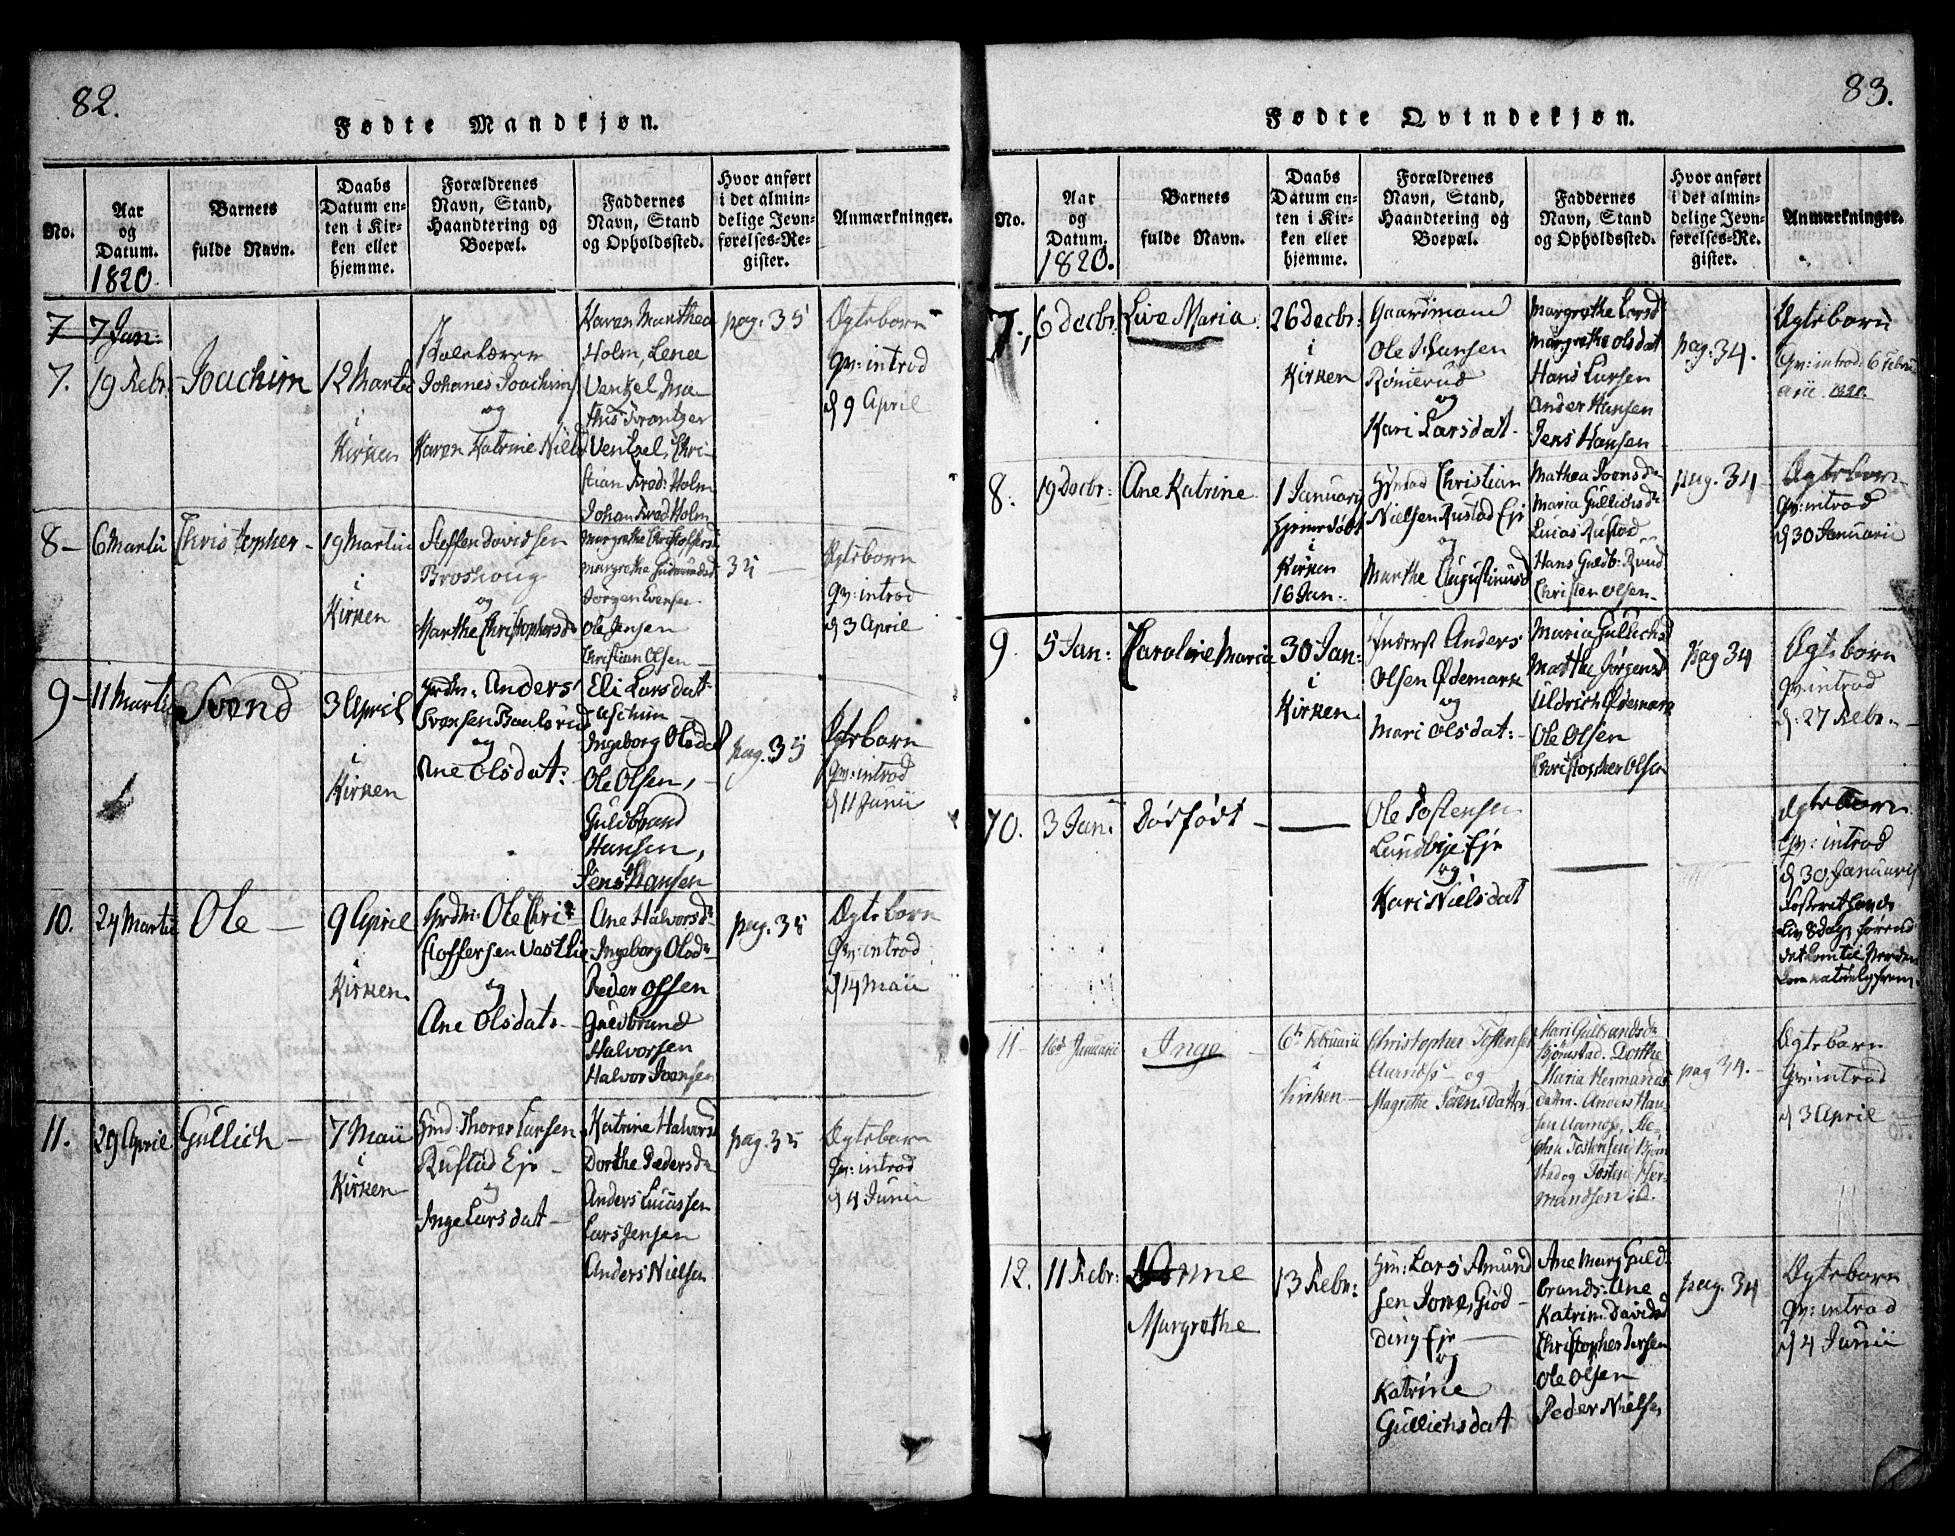 82.
Fødte Mandkjøn.
No.
Aar
og
Datum.
1820.
Barnets
fulde Navn.
Daabs
Datum en-
ten i Kir-
ken eller
hjemme.
Forældrenes
Navn, Stand,
Haandtering og
Boepæl.
Faddernes
Navn, Stand
og Opholdssted.
Hvor anført
i det almin-
delige Jevn-
førelses-Re-
gister.
Anmærkninger.
7 7 Jan:
7. 19 Febr. Joachim
12 Martii
i
Kirken
Johanes Joachims
og
Karen Katrine Niels
Karen Marthea
Holm, Lena
Ventzel Ma-
this Frantzer
Ventzel, Chri-
stian Fred: Holm
Johan Fred Holm
pag: 35
Ægtebarn
Qv: introd
d 9 April
8 - 6 Martii Christopher -
19 Martii
i
Kirken
Steffen Davidsen
Broshoug
og
Marthe Christophersd
Margrethe Christophersd
Margrethe Gudmundsd
Jørgen Evensen
Ole Jensen
Christian Olsen -
35 -
Ægtebarn
Qv: introd
d 3 April
9 - 11 Martii Svend
3 April
i
Kirken
Grdm: Anders
Svensen Baalsrud
og
Ane Olsdat:
Eli Larsdat
Ingeborg Olsdat
Ole Olsen,
Guldbrand
Hansen,
Jens Hansen
pag. 35
Ægtebarn
Qv: introd
d 11 Junii
10. 24 Martii Ole -
9 April
i
Kirken.
Grdm: Ole Chri-
stoffersen Vestlie
og
Ane Olsdat -
Ane Halvorsd
Ingeborg Olsd
Peder Olsen
Guldbrand
Halvorsen
Halvor Svensen
pag. 35
Ægtebarn
Qv: introd
d 14 Maii
11. 29 April Gullich -
7 Maii
i
Kirken
Hmd: Thorer Larsen
Rustad Eje -
og
Inge Larsdat -
Katrine Halvorsd
Dorthe Pedersd
Anders Lucassen
Lars Jensen
Anders Nielsen
pag. 35
Ægtebarn
Qv: introd
d 4 Junii
83.
Fødte Qvindekjøn.
No.
Aar
og
Datum.
1820.
Barnets
fulde Navn.
Daabs
Datum en-
ten i Kir-
ken eller
hjemme.
Forældrenes
Navn, Stand,
Haandtering og
Boepæl.
Faddernes
Navn, Stand
og Opholdssted.
Hvor anført
i det almin-
delige Jevn-
førelses-Re-
gister.
Anmærkninger.
7. 6 Decbr: Live Maria.
26 Decbr:
i
Kirken
Gaardmand
Ole Hansen
Rømerud
og
Kari Larsdat -
Margrethe Larsd
Margrethe Olsdat
Hans Larsen
Ander Hansen
Jens Hansen
pag. 34.
Ægtebarn
Qv: introd: 6 Febru-
arii 1820.
8. 19 Decbr: Ane Katrine
1 January
Hjemmedøbt
i
Kirken
16 Jan:
Christian
Nielsen Rustad Eje
og
Marthe Augustinusd
Mathea Svensd
Maria Gullichsd
Lucas Rustad
Hans Guldb: Rud
Christen Olsen -
pag. 34
Ægtebarn
Qv: introd
d 30 Januarii
9. 5 Jan: Karoline Maria
30 Jan:
i
Kirken
Inderst Anders
Olsen Ødemark
og
Mari Olsdat: -
Maria Gullichsd
Marthe Jørgensd
Uldrich Ødemark
Ole Olsen
Christopher Olsen
pag 34
Ægtebarn
Qv: introd
d: 27 Febr. -
10. 3 Jan: Dødfødt - -
Ole Tostensen
Lundbye Eje
og
Kari Nielsdat
-
Ægtebarn
Qv: introd
d 30 Januarii
11 - 16d Januarii Inge -
6te Februarii
i
Kirken -
Christopher Tostensen
Aarnæss - og
Magrethe Sørensdatter
Kari Gulbrandsd
Bjørnstad. Dorthe
Maria Hermands
datter. Anders Han-
sen Aarnæs, Ste-
phen Tostensen Bjørn
stad og Tosten Her-
mandsen ib.
pag 34. -
Ægtebarn
Qv: introd
d 3 April
12. 11 Febr:
Margrethe
13 Febr:
Hm: Lars Amund
sen
ding Eje -
og
Katrine
Gullichsdat
Ane Marg Guld-
brands: Ane
Katrin: Davidsd
Christopher Iversen
Ole Olsen
Peder Nielsen
pag. 34
Ægtebarn
Qv: introd
d 4 Junii